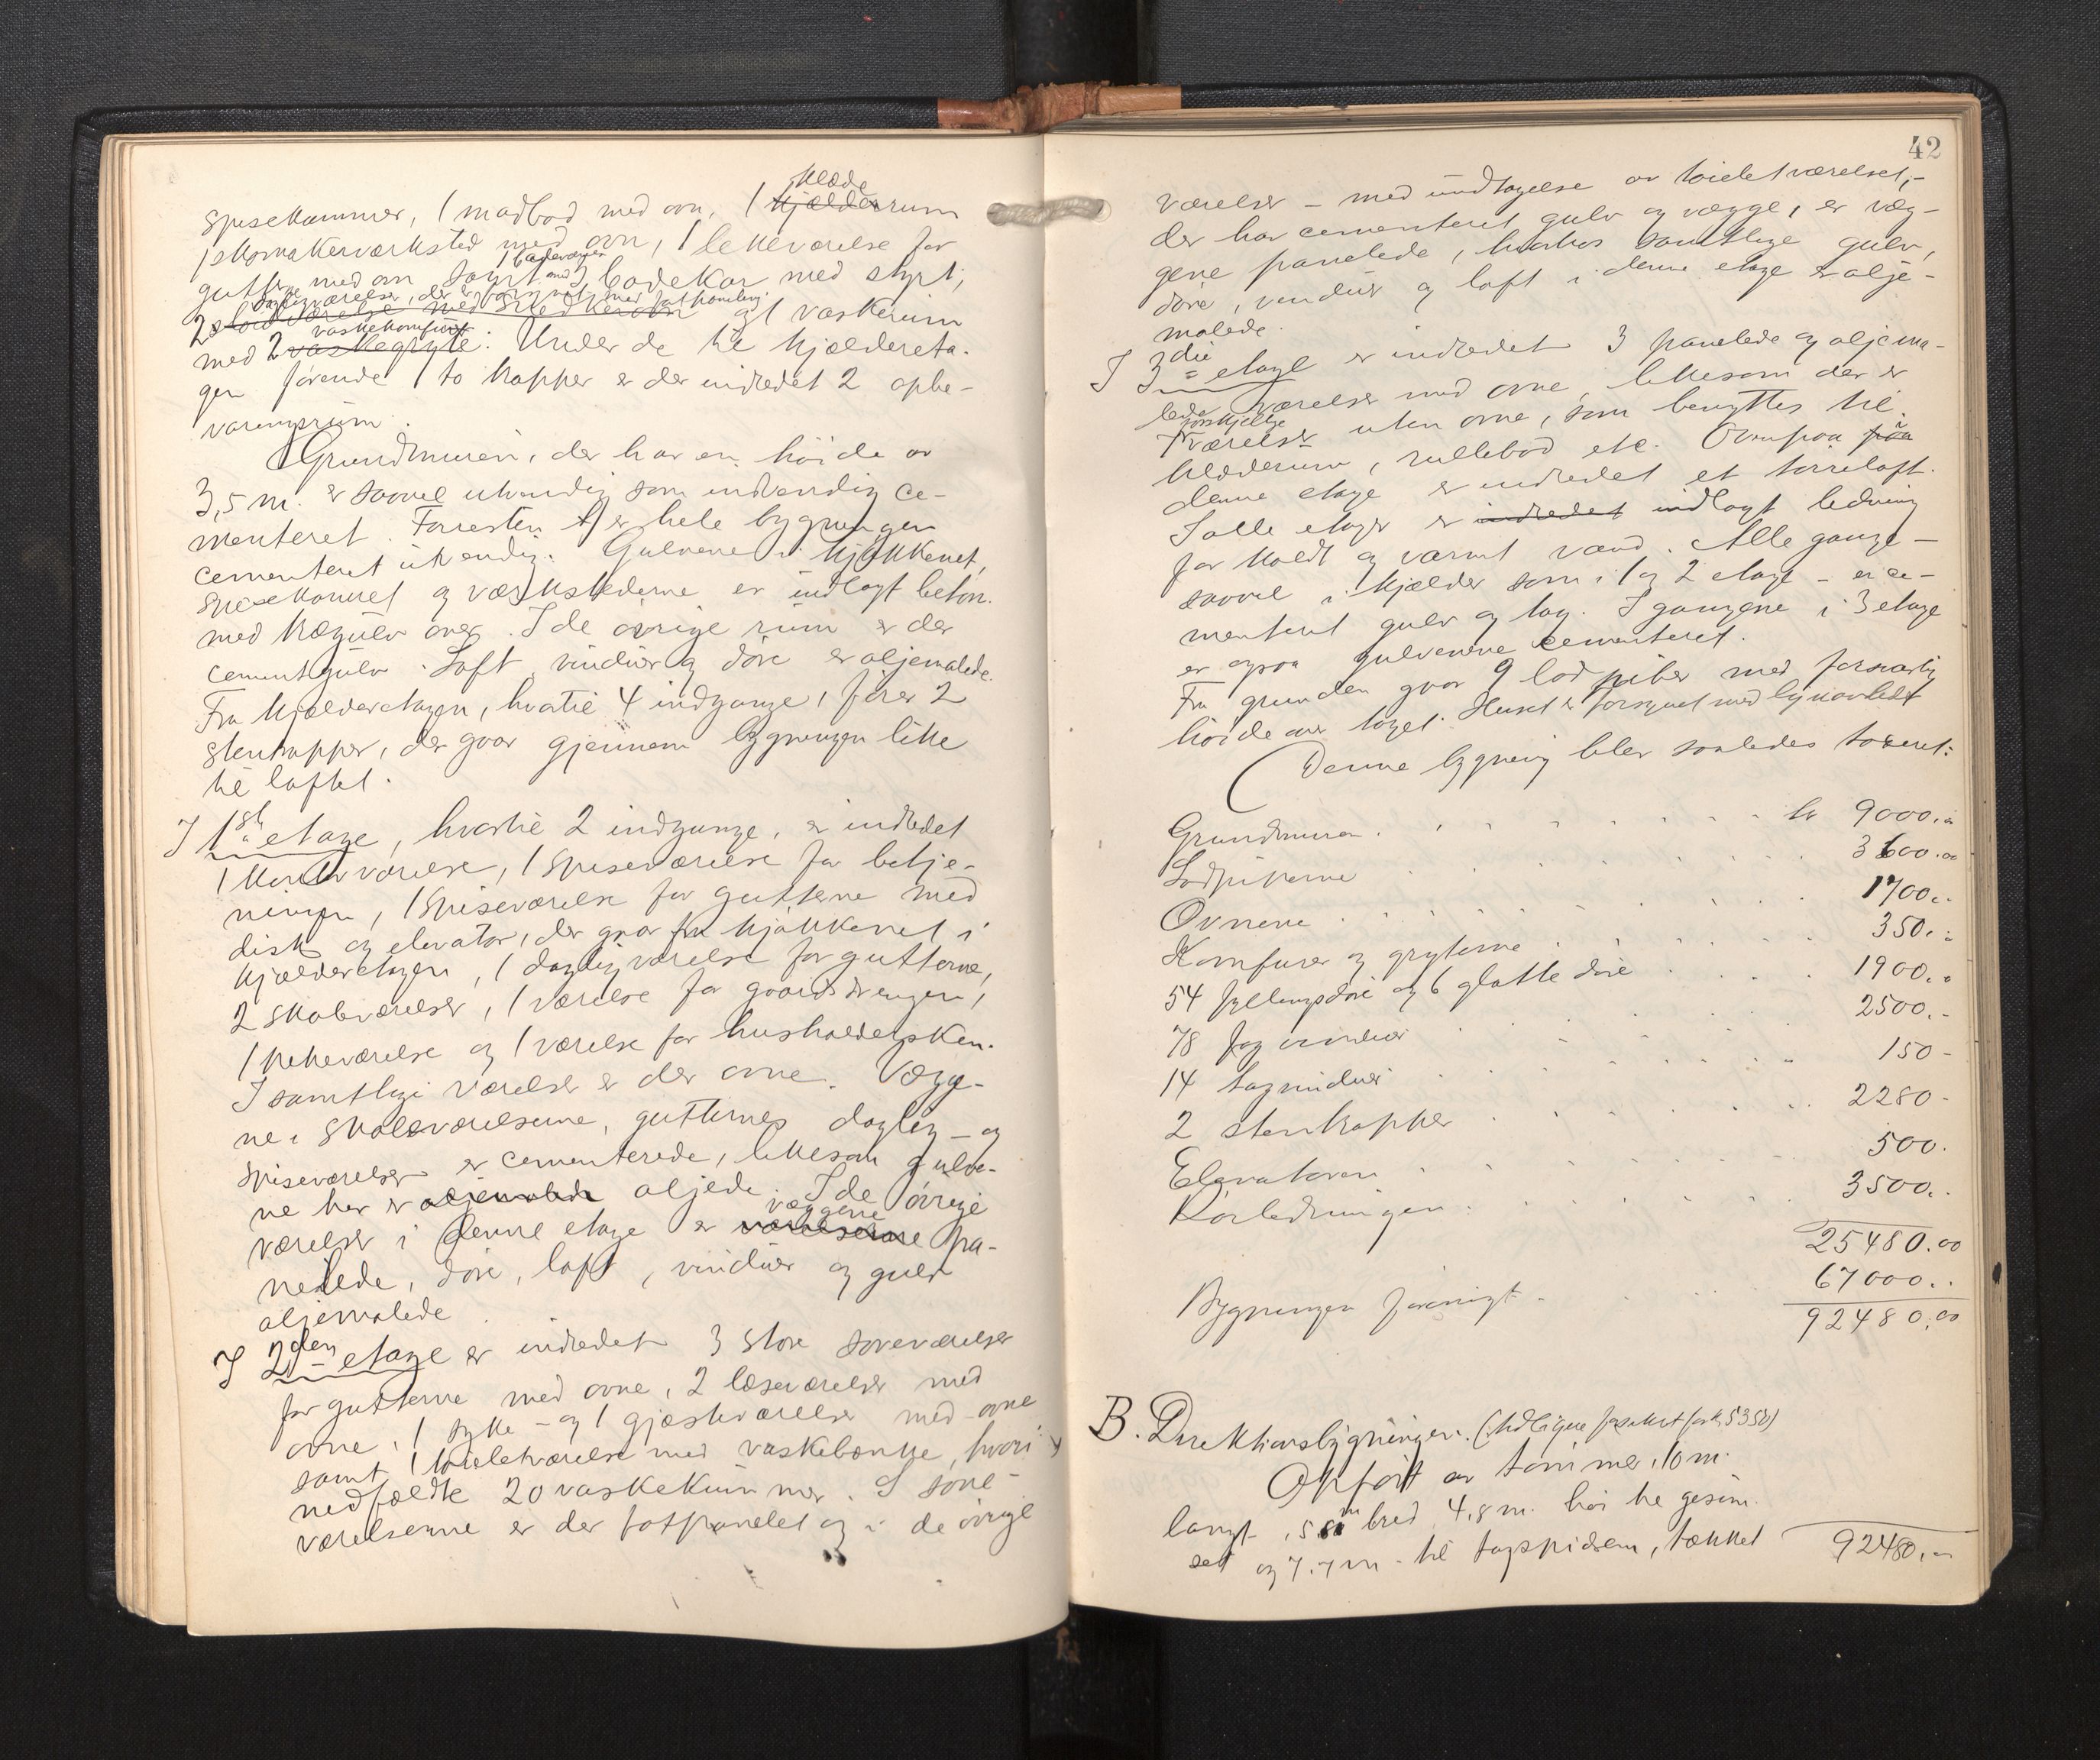 Klæde
spisekammer, 1 madbod med ovn, 1 kjælderrum
1 skomakerværksted med ovn, 1 lekeværelse for
1 badeværelse
guttene med ovn samt med 3 badekar med styrt,
2 og 1 vaskerum
vaskekomfur
med 2 vaskegryte. Under de til kjældereta-
gen førende 1 to trapper er der indredet 2 opbe-
varingsrum.
Grundmuren, der har en höide av
3,5 m. er saavel utvendig som indvendig ce-
menteret. Forresten er hele bygningen
cementeret utvendig. Gulvene i kjøkkenet,
spisekamret og værkstederne er indlagt beton
med trægulv over. I de øvrige rum er der
cementgulv. Loft, vinduer og döre er oljemalede.
Fra kjælderetagen, hvortil 4 indgange, fører 2
stentrapper, der gaar gjennem bygningen like
til loftet.
I 1ste etage, hvortil 2 indgange, er indredet
1 kontorværelse, 1 spiseværelse for betje-
ningen, 1 spiseværelse for gutterne med
disk og elevator, der gaar fra kjøkkenet i
kjælderetagen, 1 dagligværelse for gutterne,
2 skoleværelser, 1 værelse for gaardsdrengen,
1 pikeværelse og 1 værelse for husholdersken.
I samtlige værelser er der ovne. Vægge-
ne i skoleværelserne, gutternes daglig- og
spiseværelser er cementerede, likesom gulve-
ne her er oljemalede oljede. I de övrige
væggene
værelser i denne etage er værelserne pa-
nelede, döre, loft, vinduer og gulv
oljemalede
I 2den etage er indredet 3 store soveværelser
for gutterne med ovne, 2 læseværelser med
ovne, 1 syke- og 1 gjæsteværelse med ovne
samt 1 toiletværelse med vaskebænke, hvori
nedfældte 20 vaskekummer. I sove-
værelserne er der fotpanelet og i de övrige
42
værelser - med undtagelse av toiletværelset,-
der har cementeret gulv og vægge, er væg-
gene panelede, hvorhos samtlige gulv,
döre, vinduer og loft i denne etage er olje-
malede.
I 3die etage er indredet 3 panelede og oljema-
lede værelser med ovne, likesom der er
forskjellige
7 værelser uten ovne, som benyttes til
klæderum, rullebod etc. Ovenpaa paa
denne etage er indredet et törreloft.
I alle etager er indredet indlagt ledning
for koldt og varmt vand. Alle gange -
saavel i kjælder som i 1 og 2 etage - er ce-
menteret gulv og tag. I gangene i 3 etage
er ogsaa gulvene cementeret.
Fra grunden gaar 9 lodpiber med forsvarlig
höide over taget. Huset er forsynet med lynavleder
Denne bygning blev saaledes taxeret:
Grundmuren . . . . . . . kr 9000.00
Lodpiperne . . . . . . . 3600.00
Ovnene . . . . . . . 1700..
Komfurer og gryterne . . . . . 350..
54 fyllingsdöre og 6 glatte döre . . . . 1900..
78 fag vinduer . . . . . . 2500.-
14 tagvinduer . . . . . . 150-
2 stentrapper . . . . . . 2280-
Elevatoren . . . . . . 500.
Rørledningen . . . . . . 3500..
25480.00
Bygningen forøvrigt . . . 67000..
92480.00
B. Direktionsbygningen. (tidligere forsikret for kr 5350)
Opfört av tömmer, 10 m.
langt, 5.8 m bred 4,8 m. höi til gesim
set og 7.7 m. til tagspidsen, tækket
92480.-